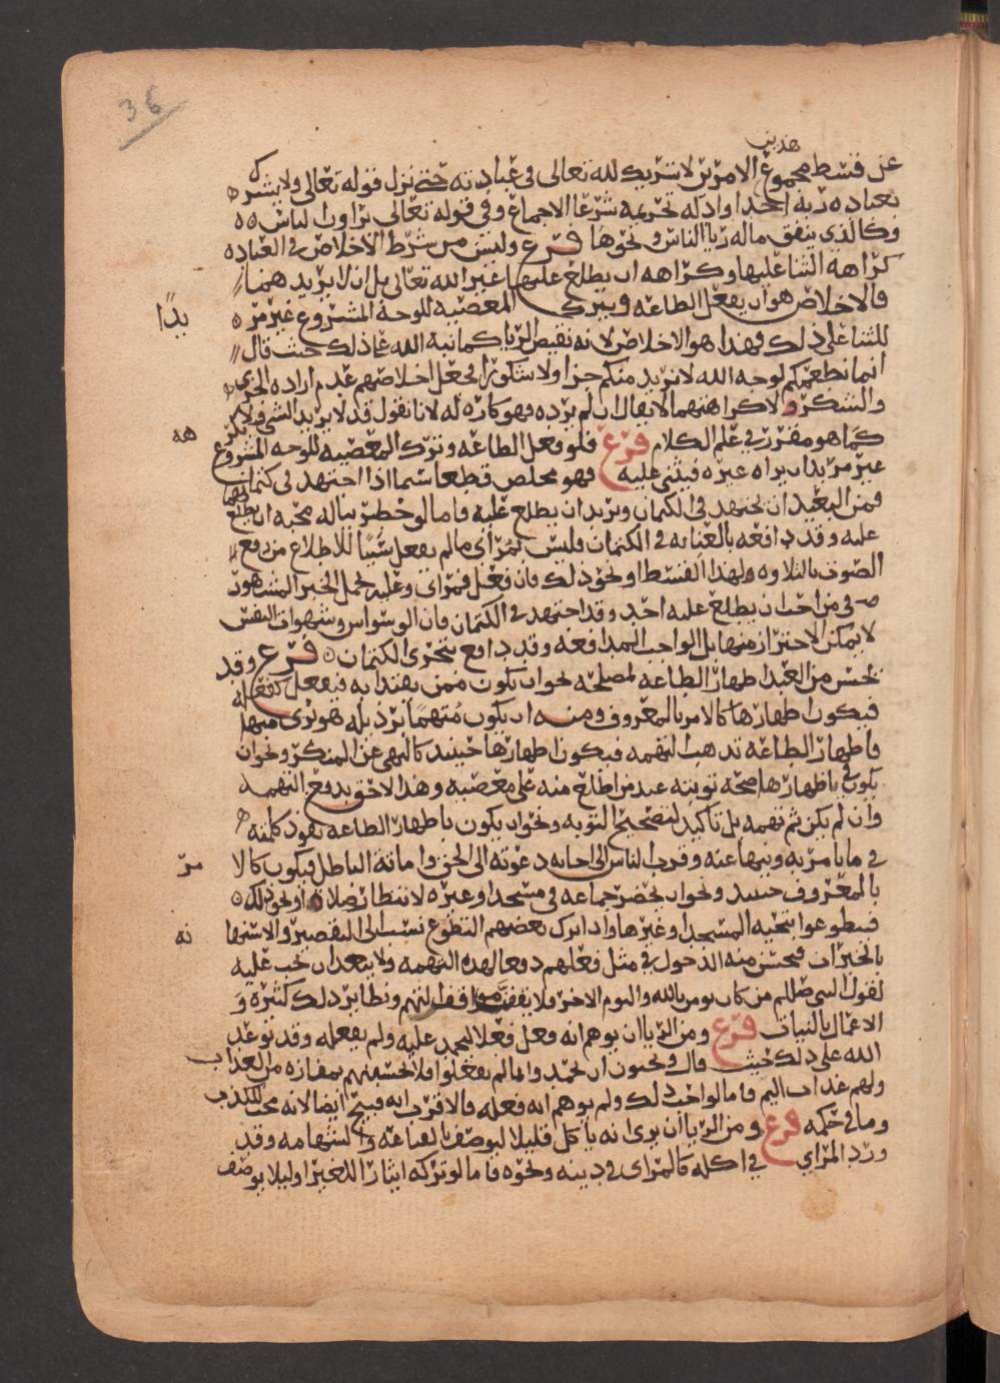 36
هذين
عن قسط مجموع الامرين لا شريك لله تعالى في عبادته حتى نزل قوله تعالى ولا يشرك
بعباده ربه احدا وادله تحريمه شرعا الاجماع وفي قوله تعالى يراون الناس ٥٥
وكالذي ينفق ماله ريا الناس ونحوها فرع وليس من شرط الاخلاص في العباده
كراهة الثنا عليها وكراهه ان يطلع عليها غير الله تعالى بل ان لا يريد هنما
فالاخلاص هو ان يفعل الطاعه ويترك المعصيه للوجه المشروع غير مر
يدًا
للثنا على ذلك فهذا هو الاخلاص لانه نقيض الريا كما نبه الله على ذلك حيث قال
انما نطعمكم لوجه الله لا نريد منكم جزا ولا شكورا فجعل اخلاصهم عدم اراده الجزى
والشكر ولا كراهتهما لا يقال ان لم يرده فهو كاره له لانا نقول قد لا يريد الشي ولا يكر
هه
كما هو مقرر في علم الكلام فرع فلو فعل الطاعه وترك المعصيه للوجه المشروع
غير مريد ان يراه غيره فيثنى عليه فهو مخلص قطعا سيما اذا اجتهد في كتمانهما
فمن البعيد ان يجتهد في الكتمان ويريد ان يطلع عليه فاما لو خطر بباله محبه ان يطلع
عليه وقد دافعه بالعنايه في الكتمان فليس بمراى ما لم يفعل شيئا للاطلاع من رفع
الصوت بالتلاوه ولهذا القسط او نحو ذلك فان فعل فمراى وعليه يحمل الخبر المشهور
في من احب ان يطلع عليه احد وقد اجتهد في الكتمان فان الوسواس وشهوات النفس
لا يمكن الاحتراز منها بل الواجب المدافعه وقد دافع بتحرى الكتمان ٥ فرع وقد
يحسن من العبد اظهار الطاعه لمصلحه نحو ان يكون ممن يقتدا به فيفعل كفعله
فيكون اظهارها كالامر بالمعروف ومنه ان يكون مُتهمًا برذيله هو برى منها
فاظهار الطاعه تدهب التهمه فيكون اظهارها حينيد كالنهي عن المنكر ونحو ان
يكون في اظهارها صحه توبته عند من اطلع منه على معصيه وهذا لاحق بدفع التهمه
وان لم يكن ثم تهمه بل تاكيد لتصحيح التوبه ونحو ان يكون باظهار الطاعه نفوذ كلمته
في ما يامر به وينها عنه وقرب الناس الى اجابه دعوته الى الحق واماتة الباطل فيكون كالا
مر
بالمعروف حينيد ونحو ان يحضر جماعه في مسجد او غيره لانتظار صلاه او نحو ذلك ٥
فيطوعوا بتحيه المسجد او غيرها واذا ترك بعضهم التطوع نسب الى التقصير والاستها
نه
بالخيرات فيحسن منه الدخول في مثل فعلهم دفعا لهذه التهمه ولا يبعد ان يجب عليه
لقول النبي صللم من كان يومن بالله واليوم الاخر فلا يقفن مواقف التهم ونظاير ذلك كثيره و
الاعمال بالنيات فرع ومن الريا ان يوهم انه فعل فعلا ليحمد عليه ولم يفعله وقد توعد
الله على ذلك حيث قال ويحبون ان يحمدوا بما لم يفعلوا فلا تحسبنهم بمفازه من العذاب
ولهم عذاب اليم فاما لو احب ذلك ولم يوهم انه فعله فالاقرب انه قبيح ايضا لانه محب للكذب
وما في حكمه فرع ومن الريا ان يرى انه ياكل قليلا ليوصف بالقناعه و الشهامه وقد
ورد المراي في اكله كالمراى في دينه ونحوه فاما لو تركه ايثارا للغير او ليلا يوصف